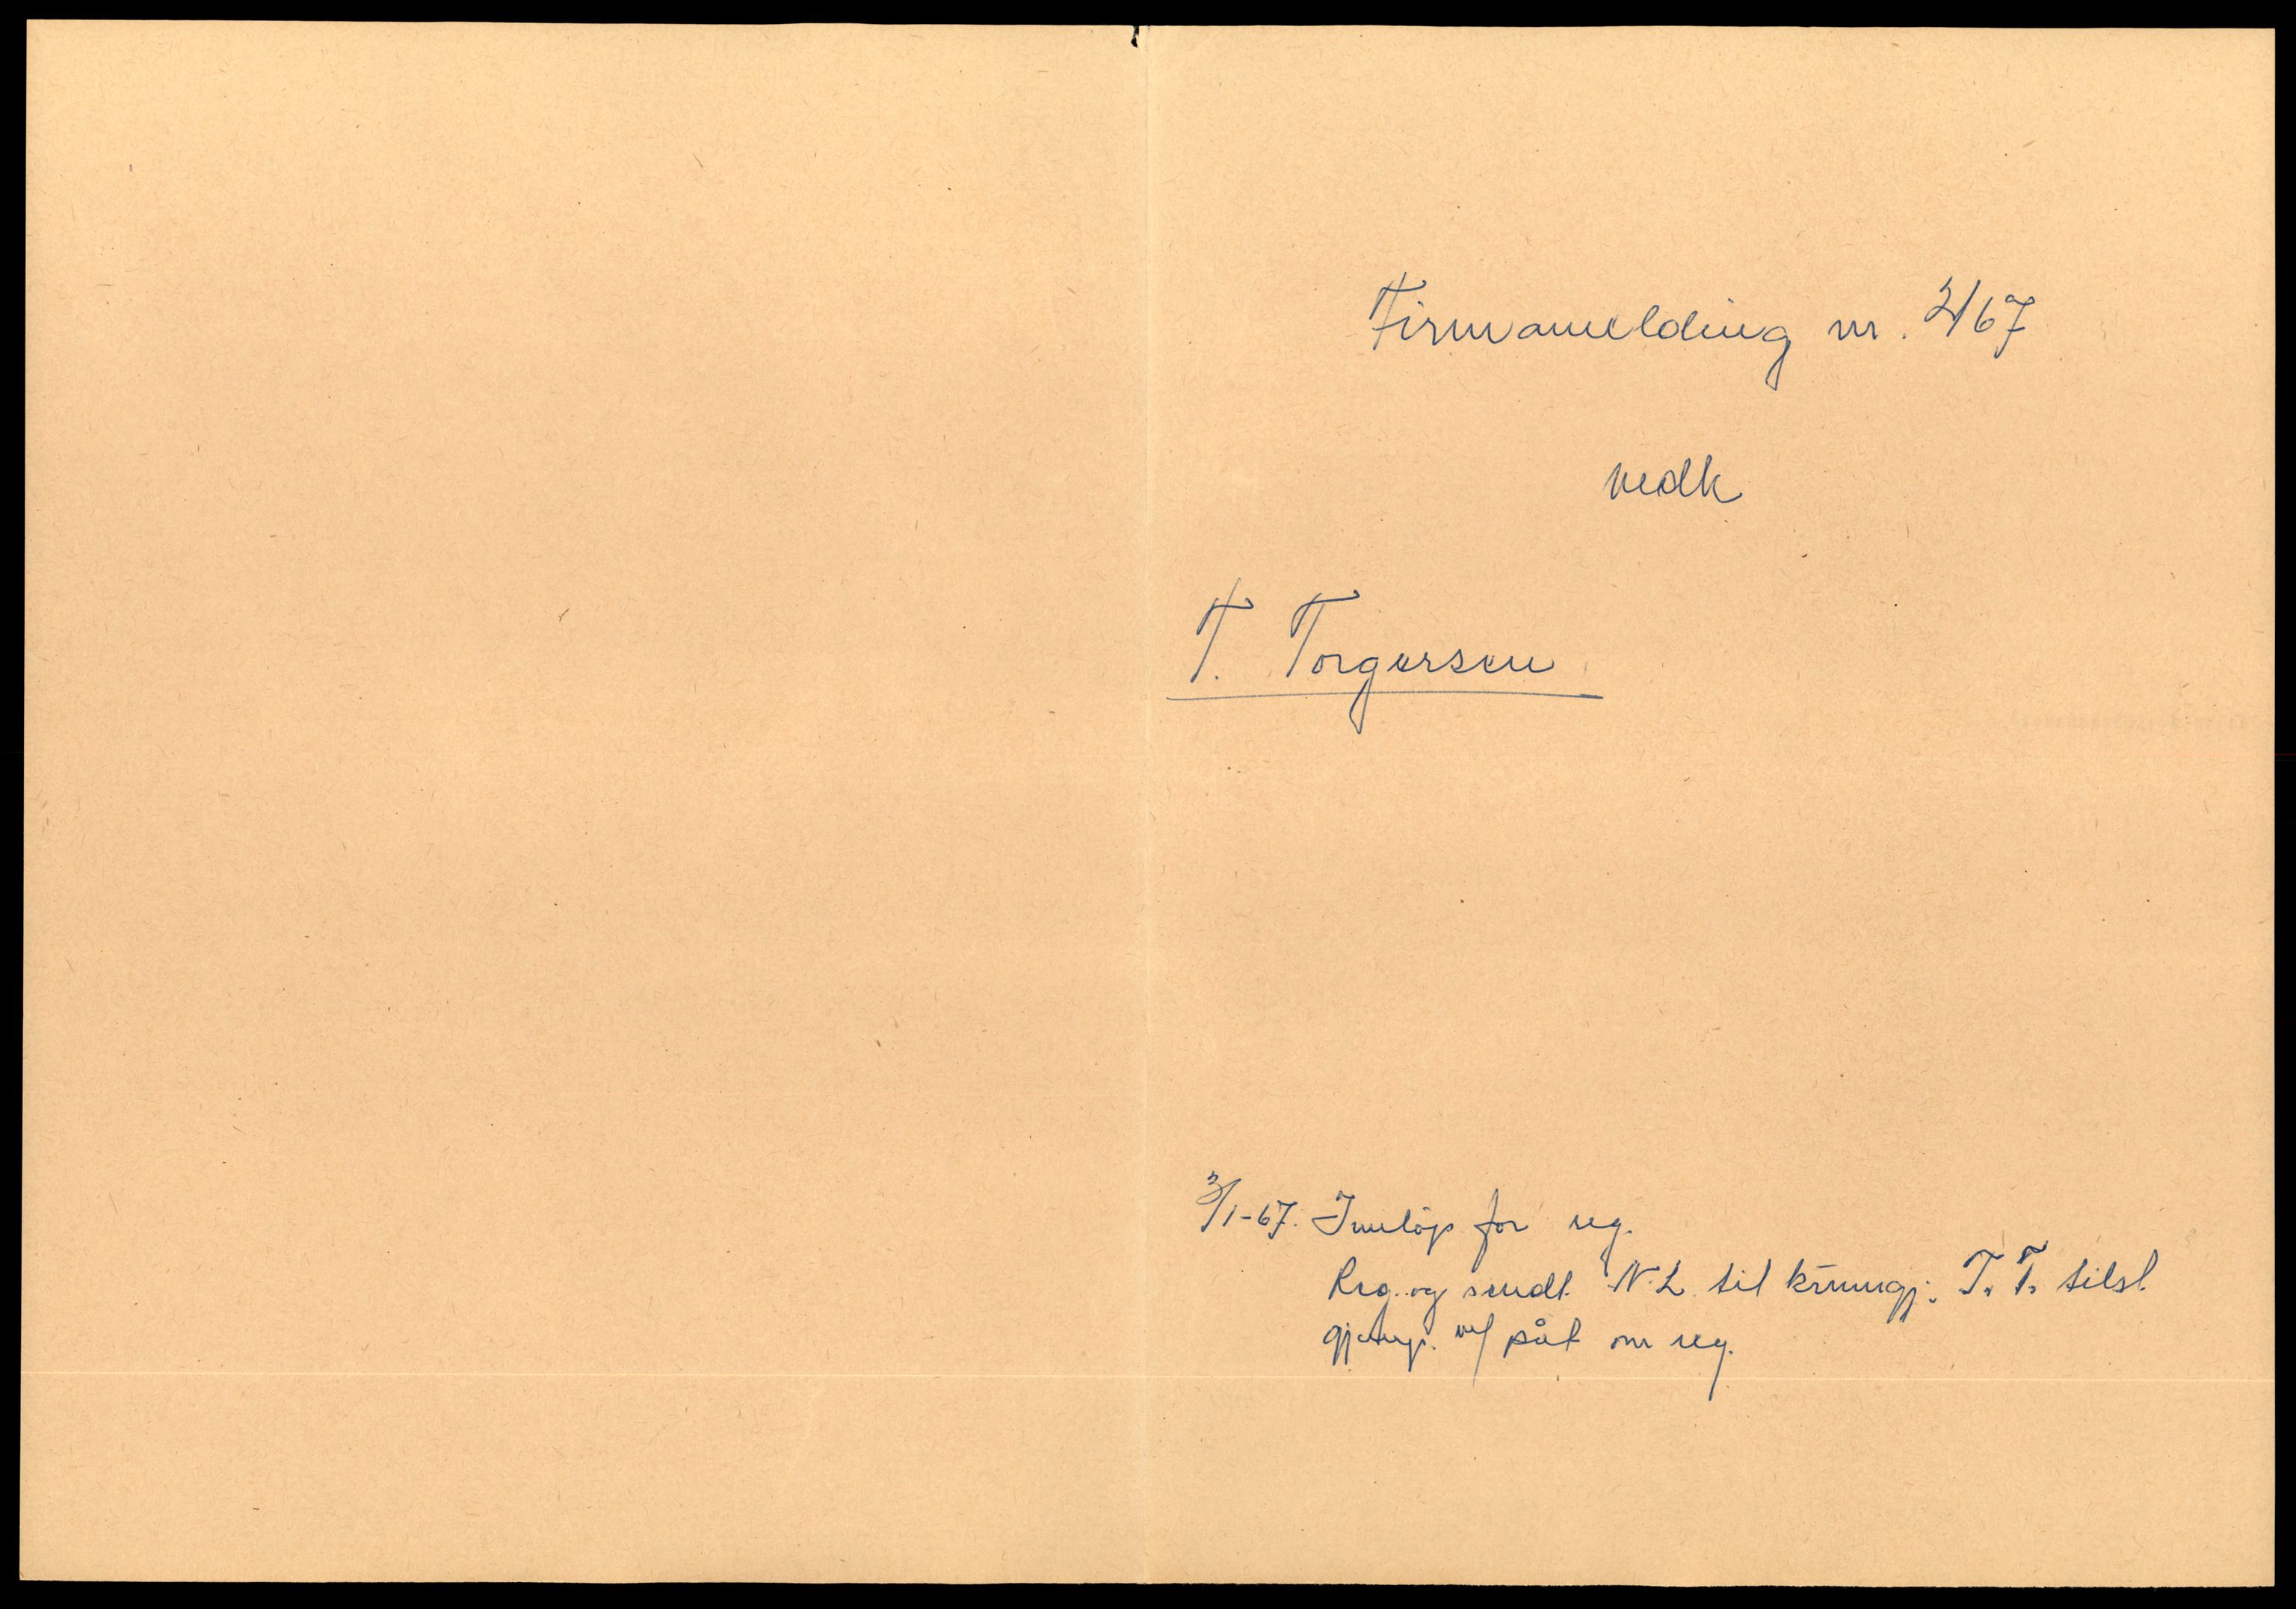 Firmamelding nr. 2/67
vedk
T. Torgersen
3/1-67. Innløp for reg.
Reg. og sendt N.L til kunngj. T. T. tilst.
gjenp. m/ påt om reg.